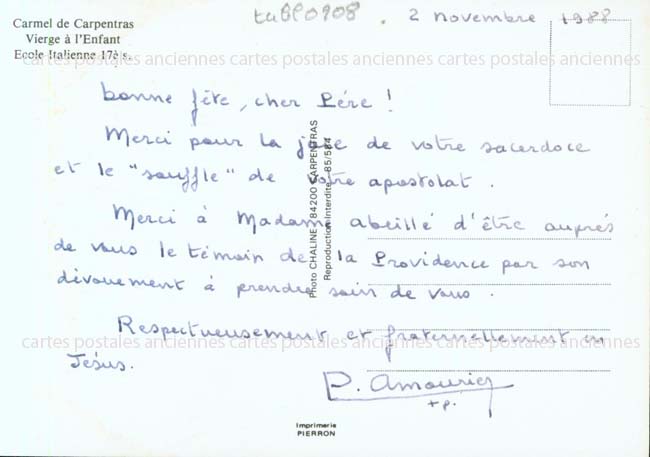 Carmel de Carpentras
Vierge à l'Enfant
Ecole Italienne 17è s.
2 novembre 1988
cartes postales anciennes cartes postales anciennes cartes postales anciennes
bonne fête, cher Père !
Merci pour la joie de votre sacerdoce
et le "souffle" de votre apostolat.
Merci à Madame abeillé d'être auprés
de vous le témoin de la Providence par son
dévouement à prendre soin de vous.
Respectueusement et fraternellement en
Jésus.
cartes postales anciennes cartes postales anciennes cartes postales anciennes
P. Amourier
+ p.
Photo CHALINE - 84200 CARPENTRAS
Reproduction Interdite - 85/564
Imprimerie
PIERRON